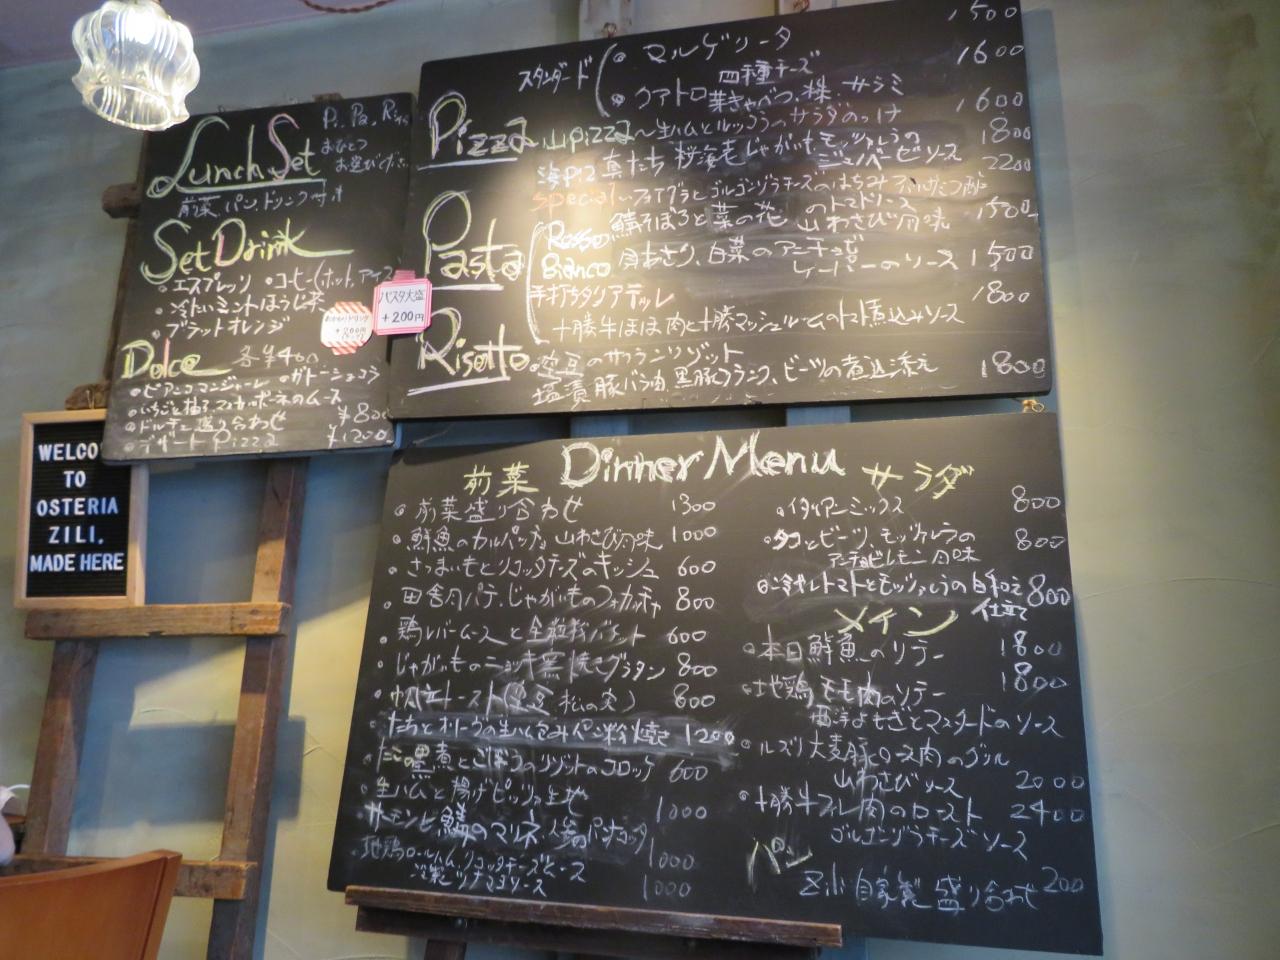 Lunch Set
P, Pa, R
おひとつ
お選びください
前菜 パン, ドリンク付き
Set Drink
・エスプレッソ ・コーヒー(ホット, アイス
・冷たいミントほうじ茶
・ブラッドオレンジ
+200円
パスタ大盛
+200円
Dolce 各¥400
・ビアンコマンジャーレ ・ガトーショコラ
・いちごと柚子 マスカルポーネのムース
・ドルチェ盛り合わせ ¥800
・デザートPizza ¥1200
WELCO
TO
OSTERIA
ZILI.
MADE HERE
Pizza
スタンダード
・マルゲリータ 1500
四種チーズ
・クアトロ 1600
葉きゃべつ, 株, サラミ
〜山pizza〜生ハムとルッコラのサラダのっけ 1600
海Piz 真だち 桜海老じゃがいもモッツァレラの 1800
ジェノベーゼソース
special フォアグラとゴルゴンゾラチーズのはちみつバルサミコ酢 2200
Pasta
Rosso 鯖そぼろと菜の花のトマトソース 1500
山わさび風味
Bianco 白菜のアンチョビ
ケーパーのソース 1500
手打ちタリアテッレ 1800
十勝牛ほほ肉と十勝マッシュルームのトマト煮込みソース
Risotto
のサフランリゾット
塩漬豚バラ肉, 黒豚フランク, ビーツの煮込添え 1800
Dinner Menu
前菜
・前菜盛り合わせ 1300
・鮮魚のカルパッチョ 山わさび風味 1000
・さつまいもとリコッタチーズのキッシュ 600
・田舎肉パテ, じゃがいものフォカッチャ 800
・鶏レバームースと全粒粉バゲット 600
・じゃがいものニョッキ窯焼きグラタン 800
・帆立トースト 800
・たちとオリーブの生ハム包みパン粉焼き 1200
・たこ黒煮とごぼうのリゾットのコロッケ 600
・生ハムと揚げピッツァ生地 1000
サーモンと鯖のマリネ 人参のパンナコッタ 1000
地鶏ロールハム, リコッタチーズとース
冷製ツナマヨソース 1000
サラダ
・イタリアーミックス 800
・タコとビーツ, モッツァレラの 800
アンチョビレモン風味
・冷やしトマトとモッツァレラの白和え 800
仕立て
メイン
・本日鮮魚のソテー 1800
・地鶏モモ肉のソテー 1800
西洋よもぎとマスタードのソース
・ルスツ大麦豚ロース肉のグリル
山わさびソース 2000
・十勝牛フィレ肉のロースト 2400
ゴルゴンゾラチーズソース
パン
Zili自家製盛り合わせ 200